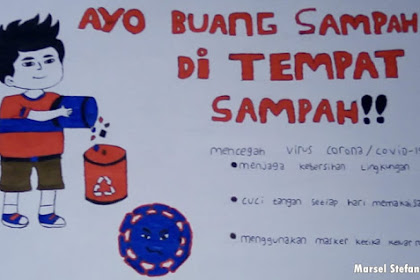 AYO BUANG SAMPAH
Di TEMPAT
SAMPAH!!
mencegah virus corona/covid-1
• menjaga kebersihan lingkungan
• cuci tangan setiap hari
• menggunakan masker ketika
Marsel Stefan